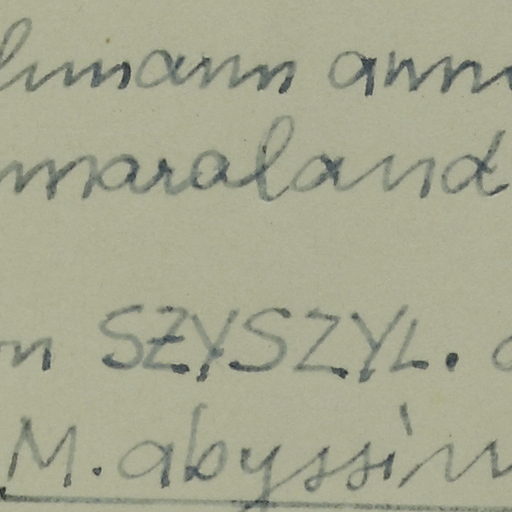 hmann ann
maraland
on SZYSZYL.
M. abyssin